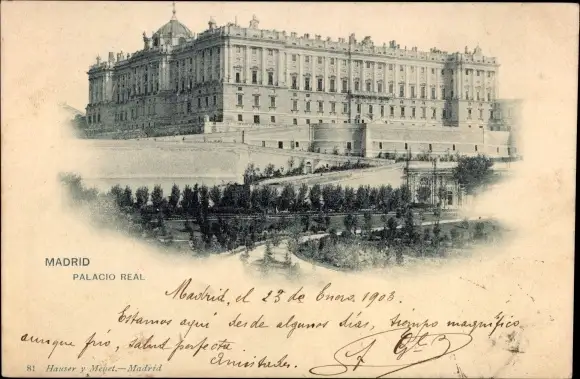 MADRID
PALACIO REAL
Madrid, el 23 de Enero, 1903.
Estamos aquí desde algunos días, tiempo magnífico
aunque frío, salud perfecta
Amistades.
81 Hauser y Menet.—Madrid